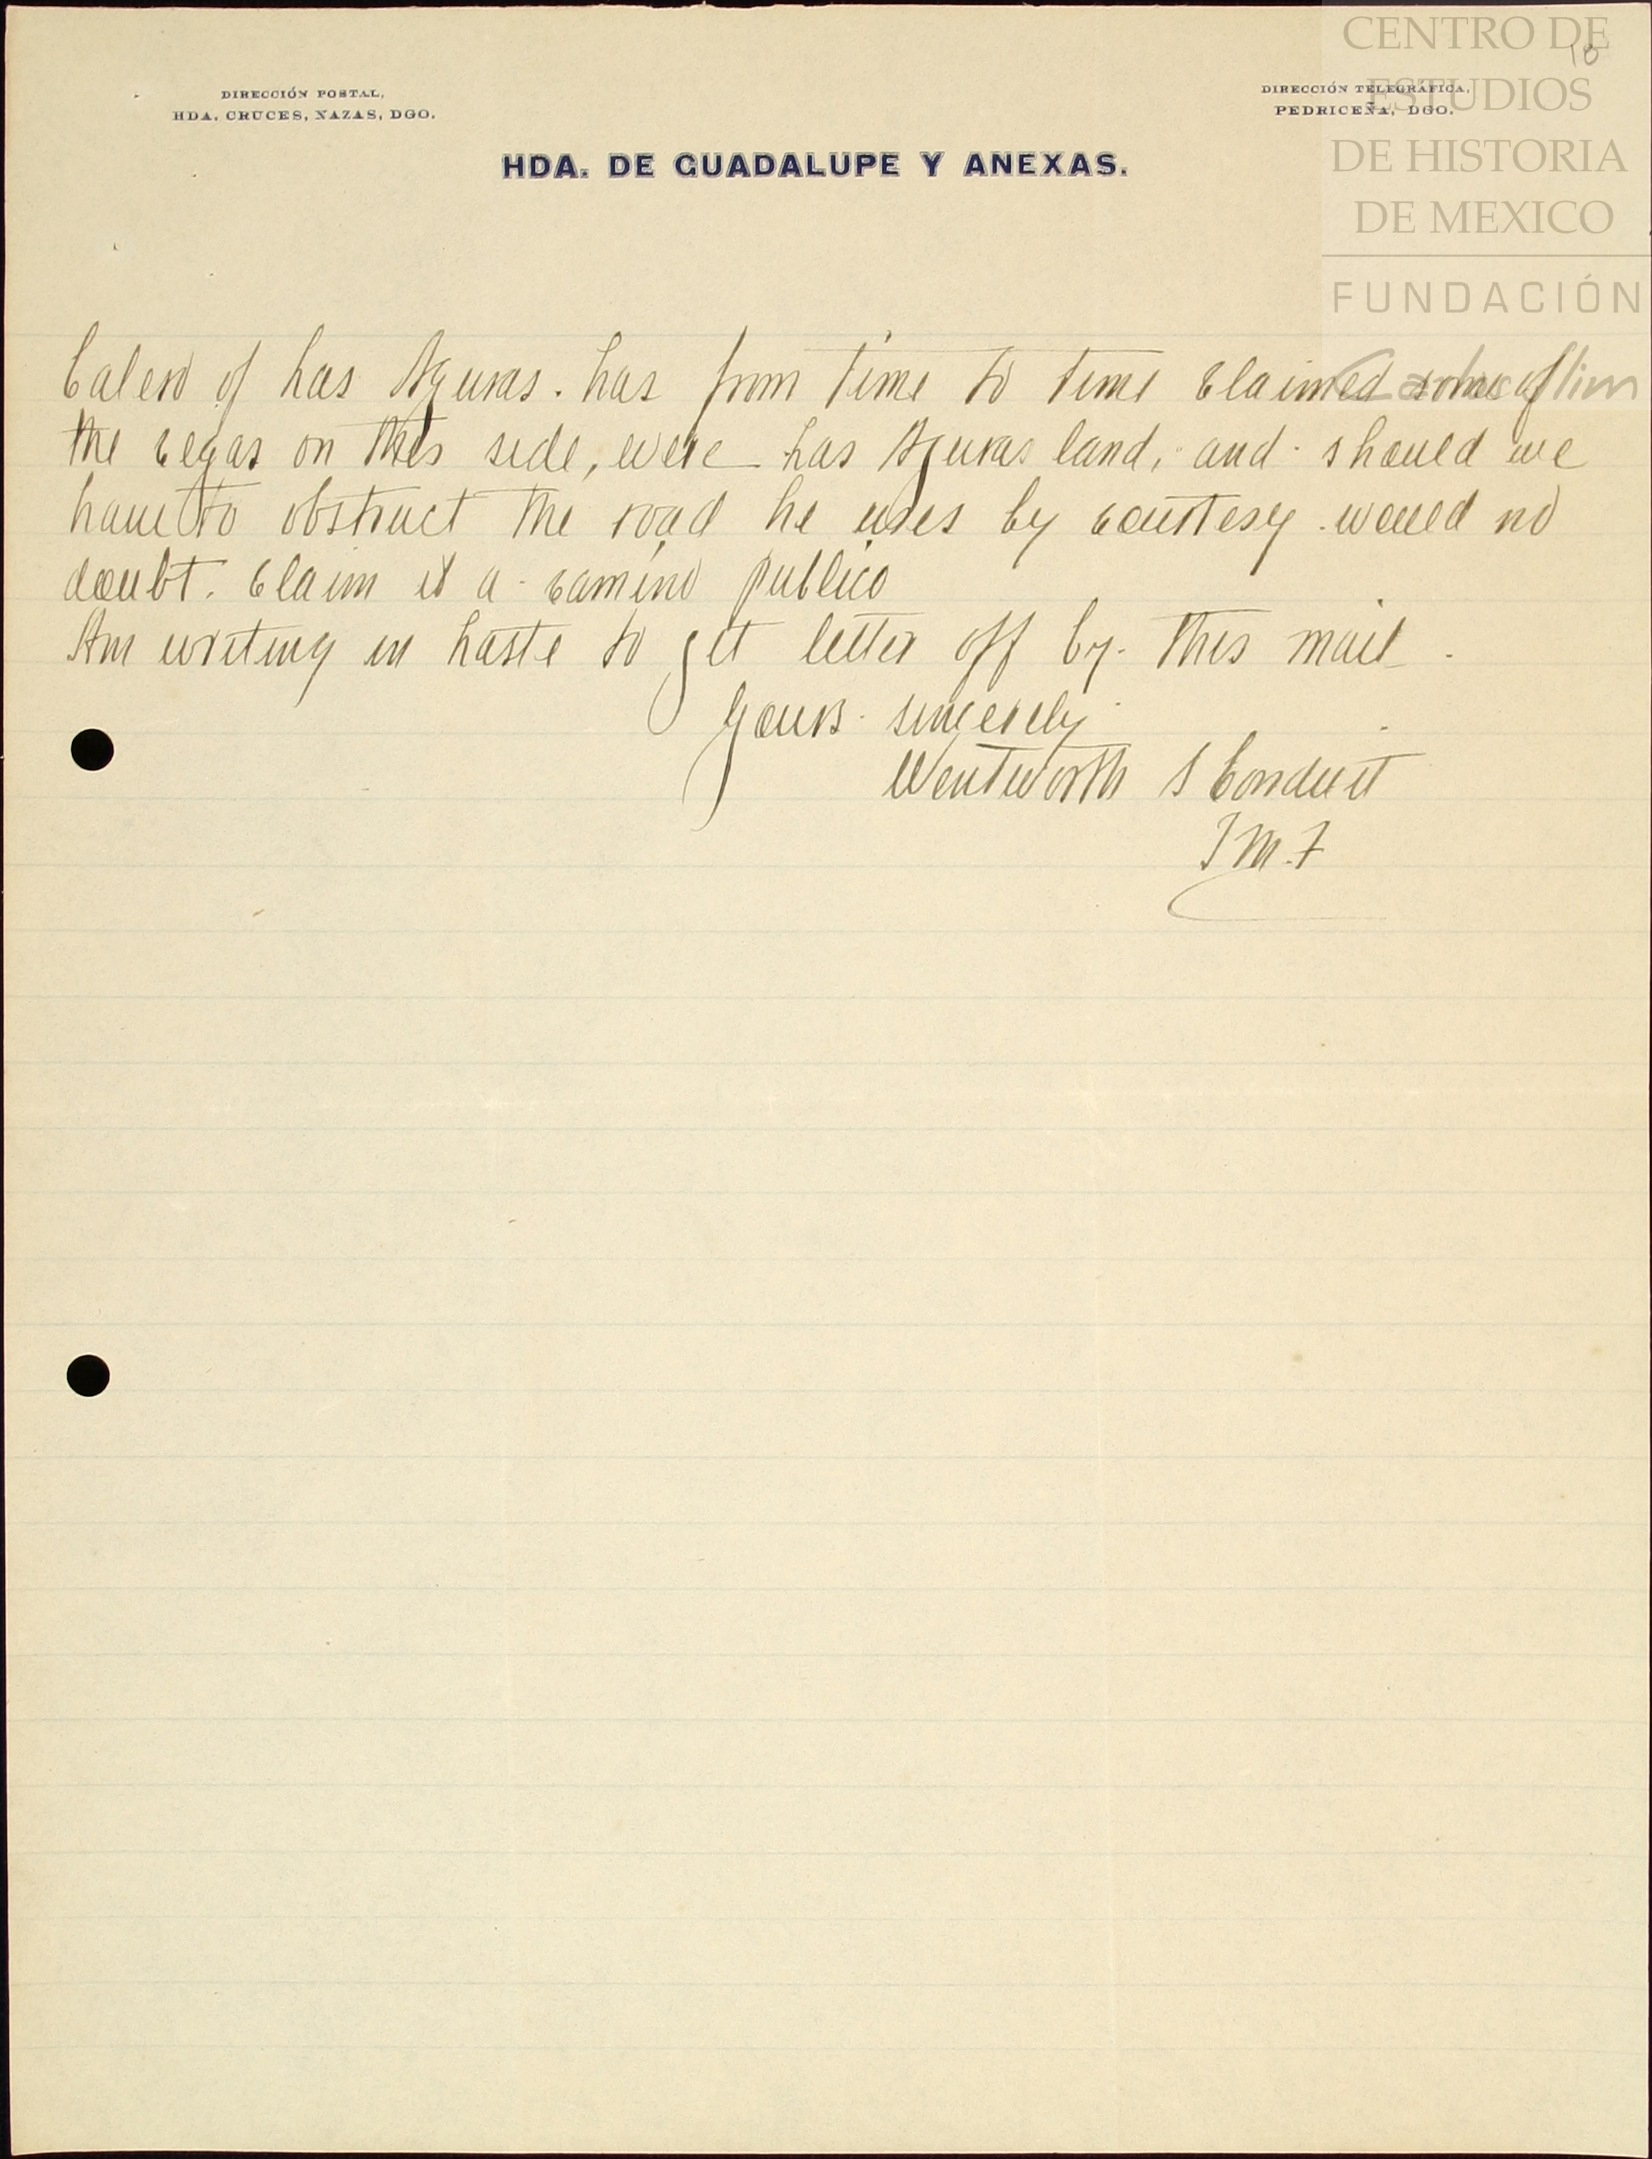 CENTRO DE
ESTUDIOS
DE HISTORIA
DE MEXICO
FUNDACIÓN
18
DIRECCIÓN POSTAL,
HDA. CRUCES, NAZAS, DGO.
DIRECCIÓN TELEGRÁFICA,
PEDRICEÑA, DGO.
HDA. DE GUADALUPE Y ANEXAS.
of Las has from time to time claimed some of
the vegas on this side, were Las land, and should we
have to obstruct the road he uses by courtesy would no
doubt. claim it a camino publico
Am writing in haste to get letter off by this mail
Yours sincerely
Wentworth S Conduit